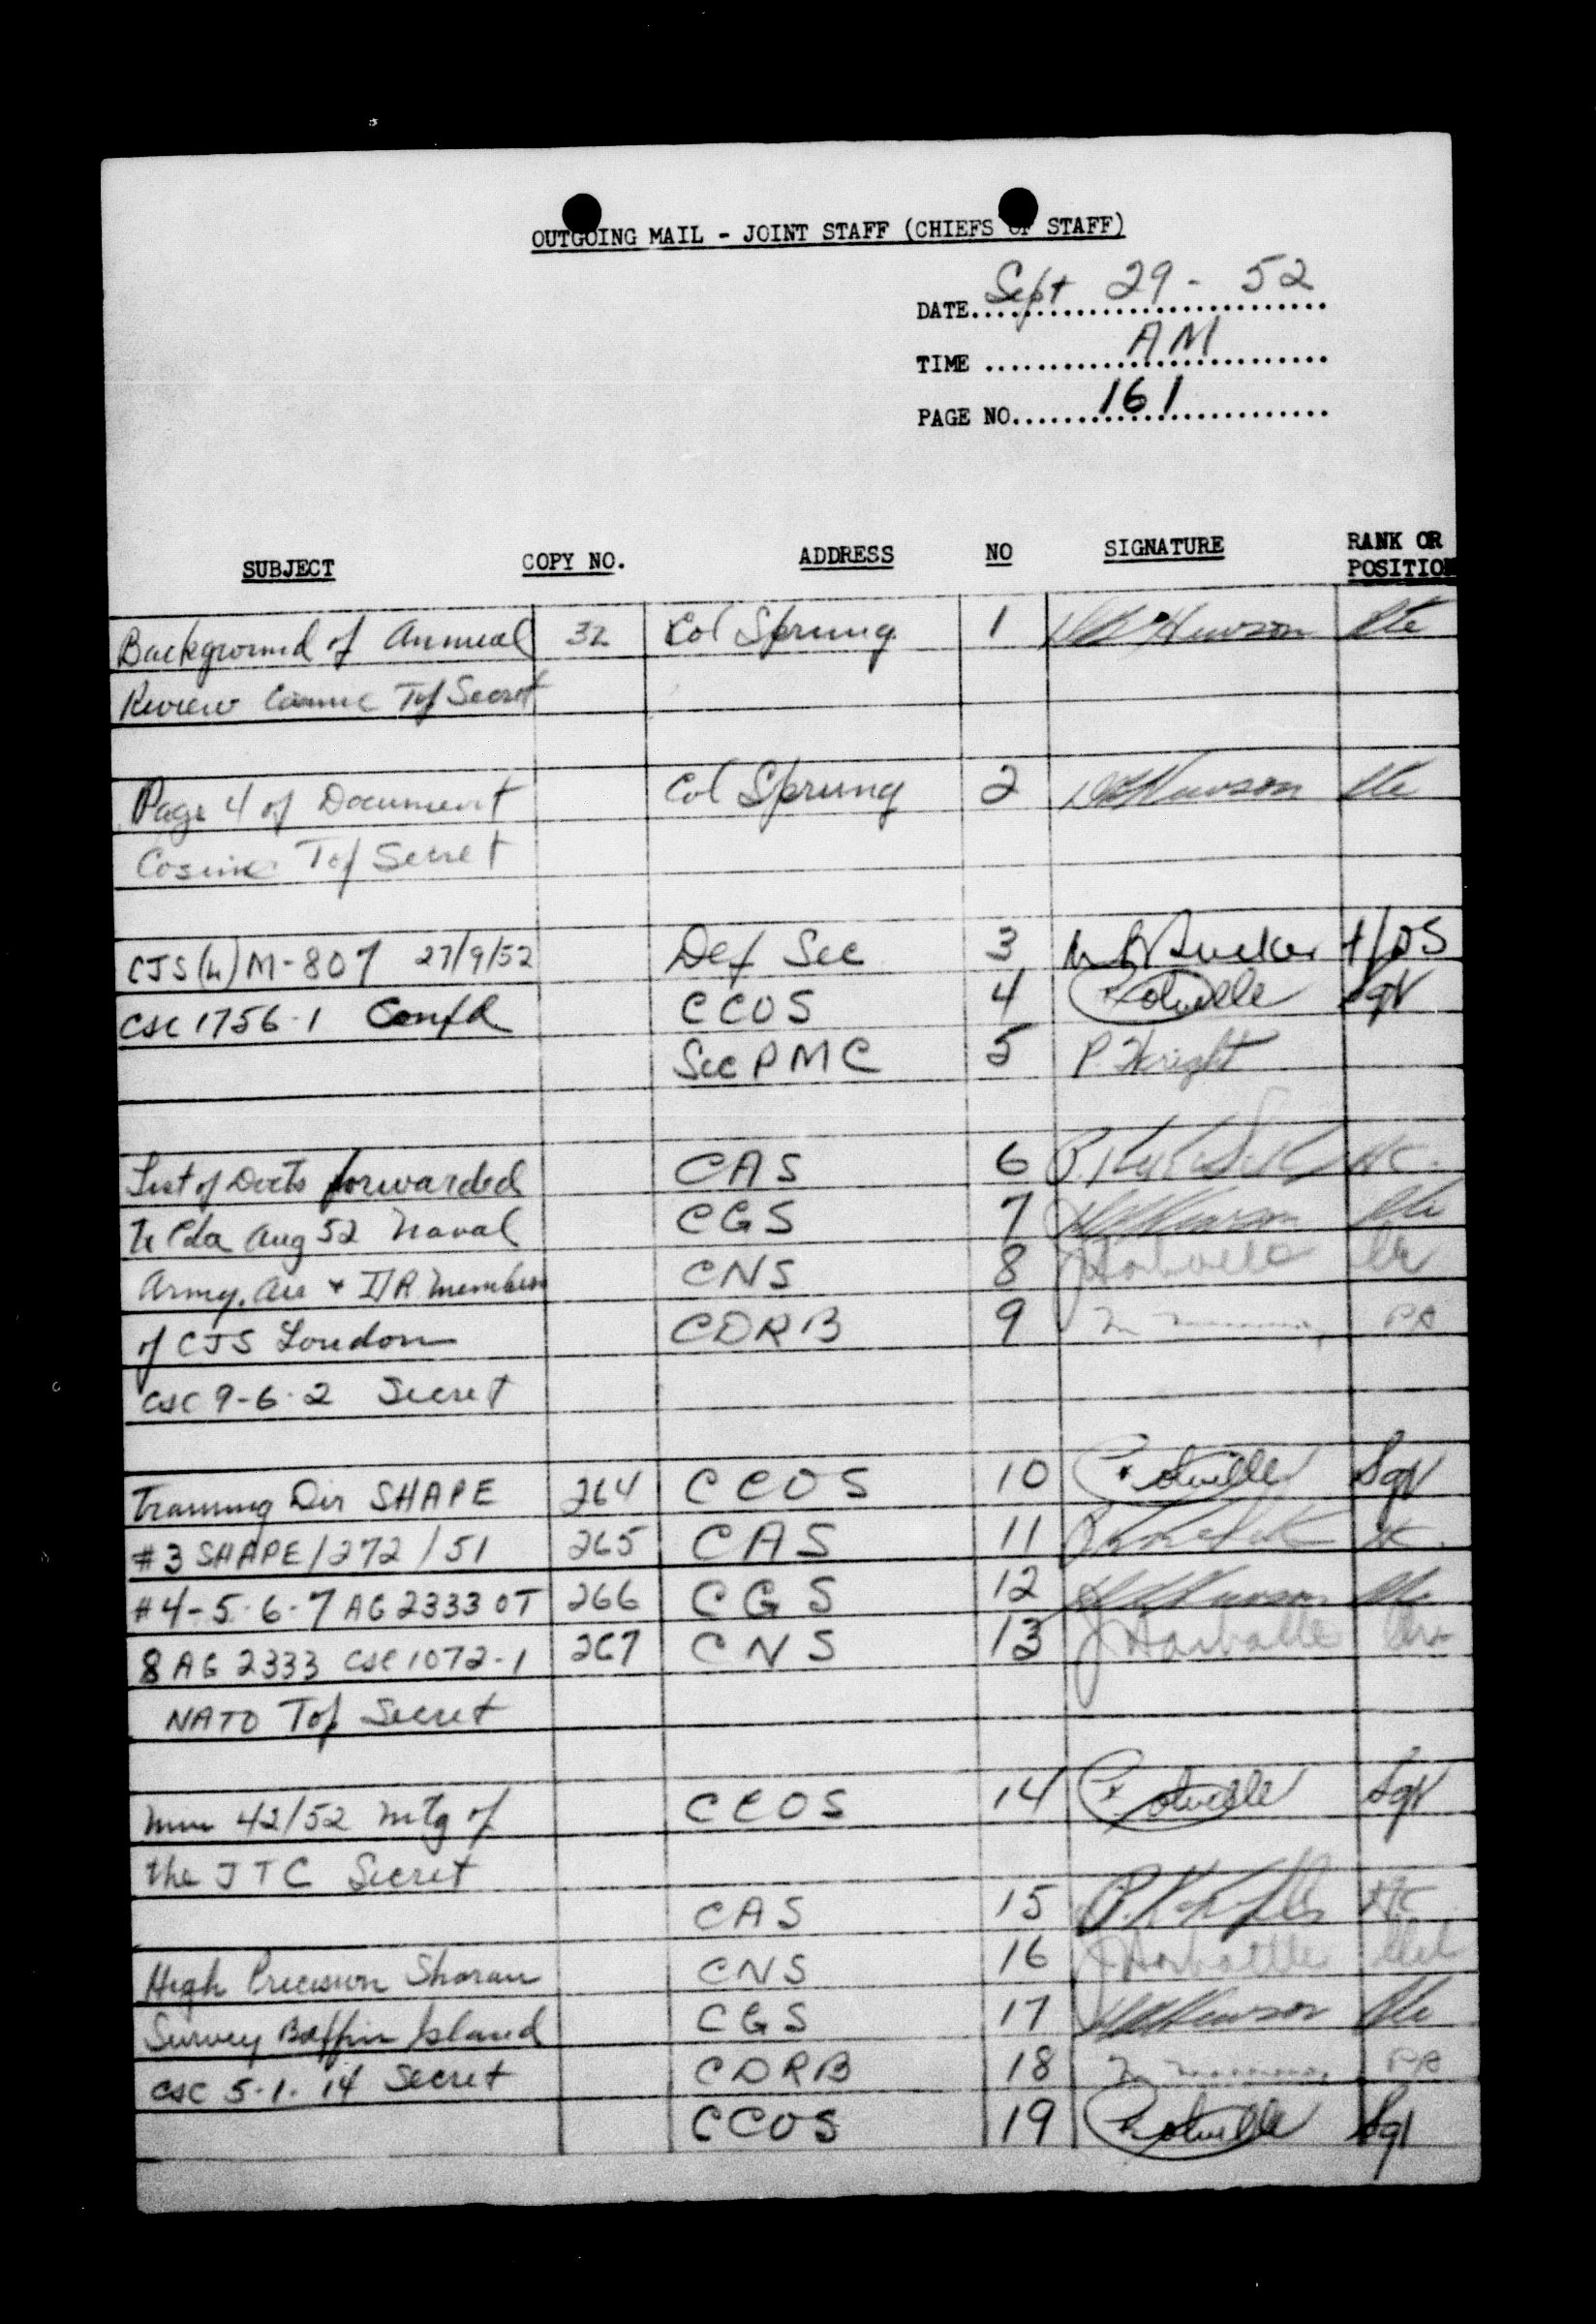 OUTGOING MAIL - JOINT STAFF (CHIEFS OF STAFF)
DATE Sept 29 - 52
TIME AM
PAGE NO. 161
SUBJECT COPY NO. ADDRESS NO SIGNATURE RANK OR POSITION
Background of Annual 32 Col Sprung 1 Hewson Pte
Review Cosmic Top Secret
Page 4 of Document Col Sprung 2 Hewson Pte
Cosmic Top Secret
CJS(L)M-807 27/9/52 Def Sec 3
CSC 1756-1 Confd CCOS 4 Sgt
Sec PMC 5 P. Wright
List of Docts forwarded CAS 6
to Cda Aug 52 Naval CGS 7 Hewson Pte
Army, Air + I/A members CNS 8
of CJS London CDRB 9 PA
CSC 9-6-2 Secret
Training Dir SHAPE 264 CCOS 10 Sgt
#3 SHAPE/272/51 265 CAS 11
#4-5-6-7 AG 2333 OT 266 CGS 12 Hewson Pte
8 AG 2333 CSC 1072-1 267 CNS 13 J Harbottle
NATO Top Secret
Min 42/52 Mtg of CCOS 14 Sgt
the JTC Secret
CAS 15
High Precision Shoran CNS 16 J Harbottle
Survey Baffin Island CGS 17 Hewson Pte
CSC 5-1-14 Secret CDRB 18 PA
CCOS 19 Sgt